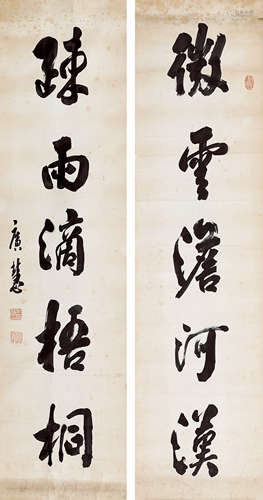 微雲澹河漢
疎雨滴梧桐
廣慧